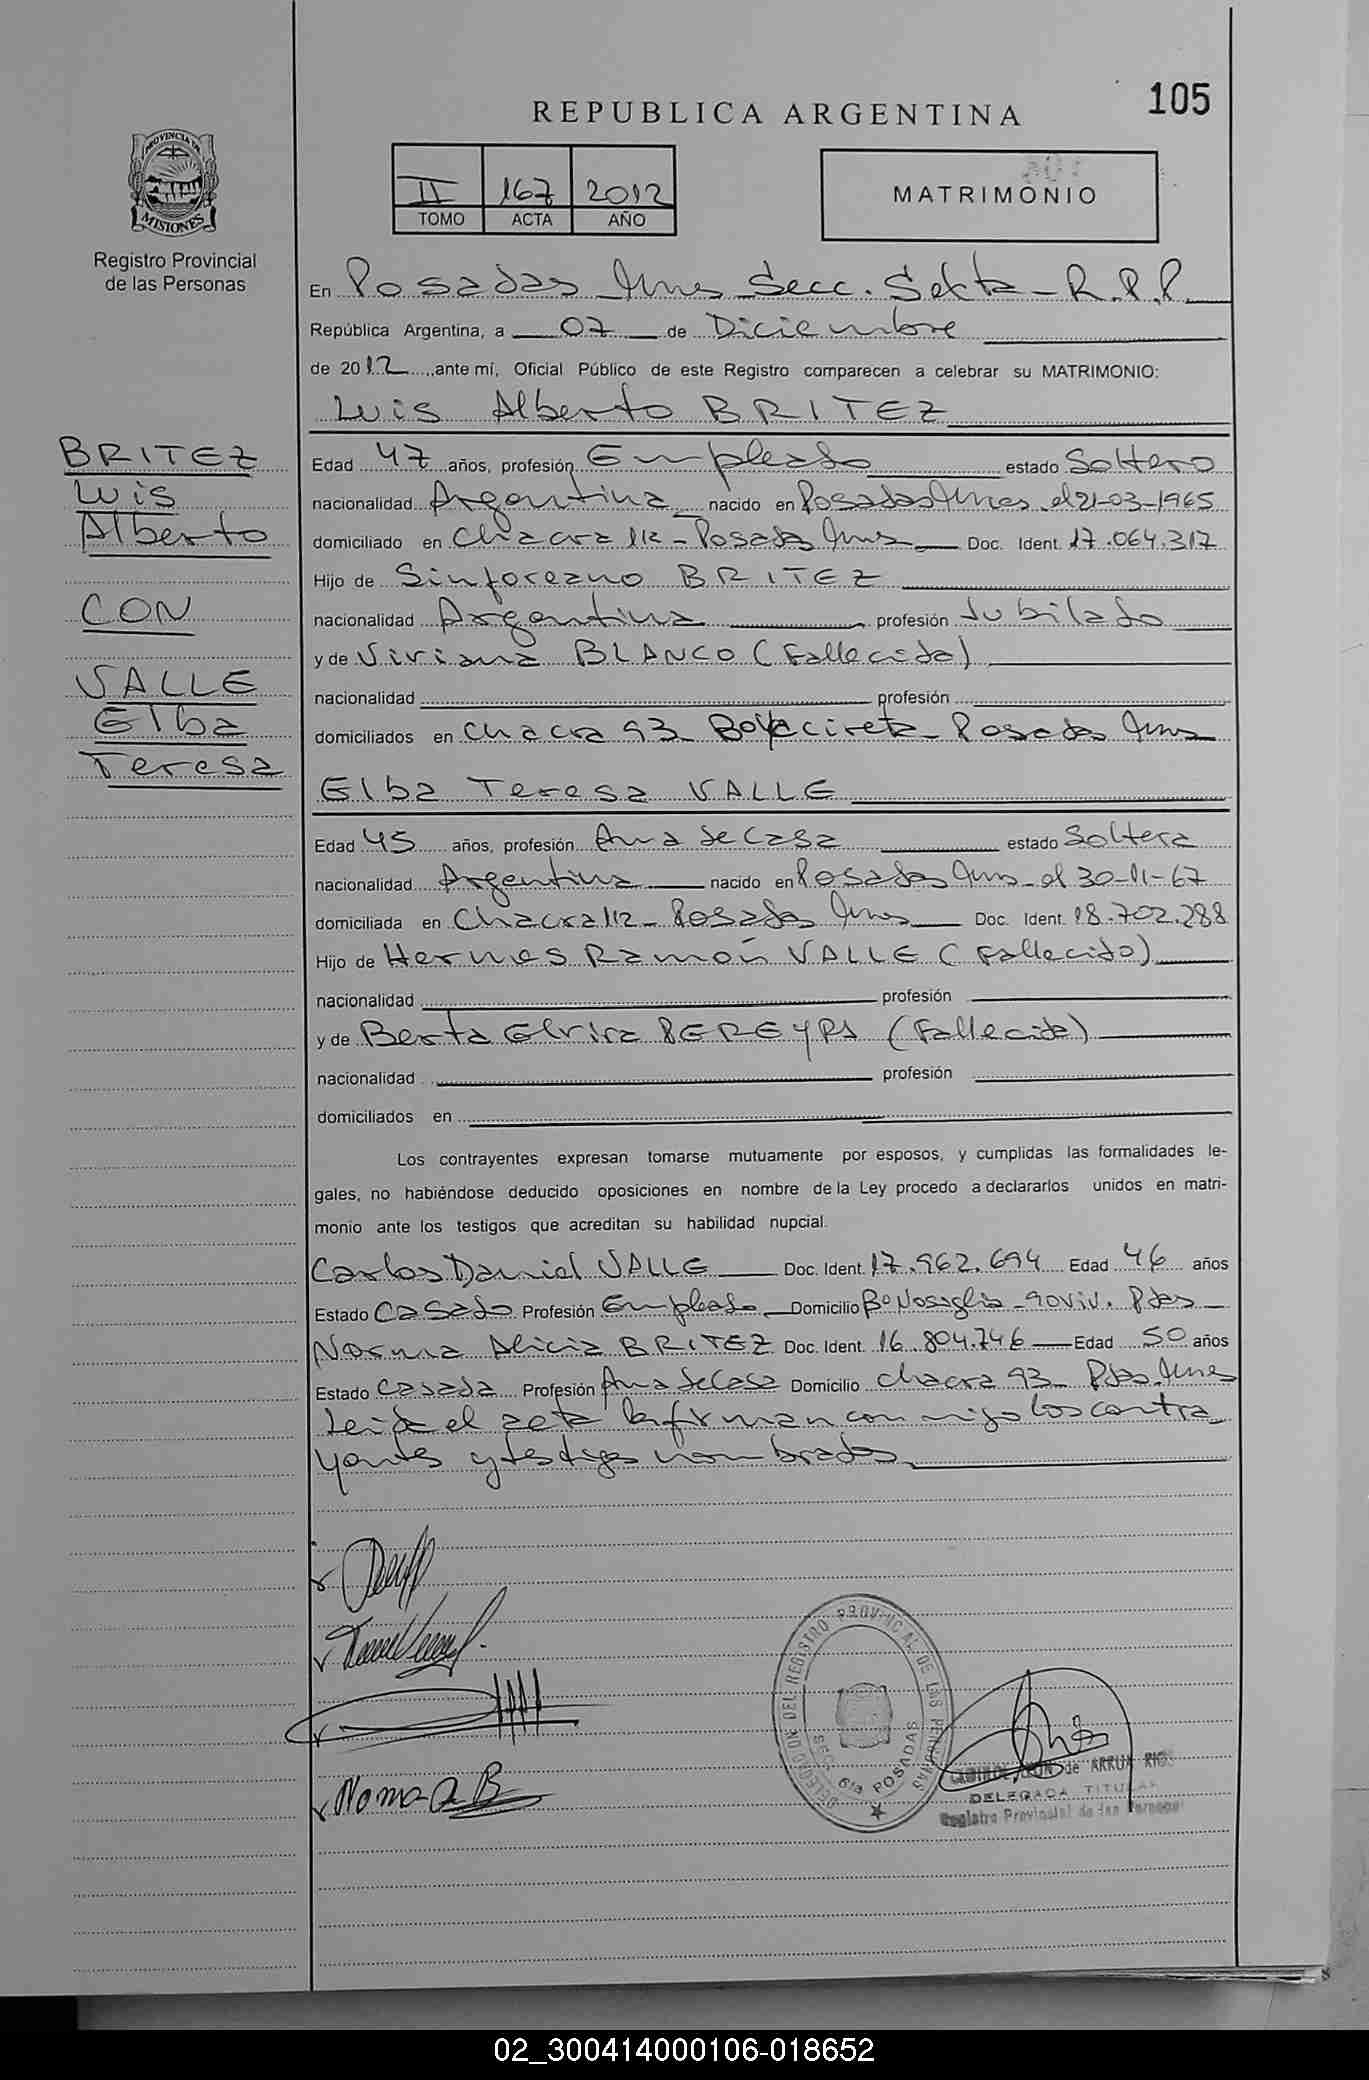 105
REPUBLICA ARGENTINA
PROVINCIA DE
MISIONES
Registro Provincial
de las Personas
II 167 2012
TOMO ACTA AÑO
MATRIMONIO
En Posadas Mnes Secc. Sexta - R.P.P.
República Argentina, a 07 de Diciembre
de 2012, ante mí, Oficial Público de este Registro comparecen a celebrar su MATRIMONIO:
Luis Alberto BRITEZ
BRITEZ
Luis
Alberto
CON
VALLE
Elba
Teresa
Edad 47 años, profesión Empleado estado Soltero
nacionalidad Argentina nacido en Posadas Mnes el 21-03-1965
domiciliado en Chacra 112 - Posadas Mnes Doc. Ident. 17.064.317
Hijo de Sinforeano BRITEZ
nacionalidad Argentina profesión Jubilado
y de Viviana BLANCO (Fallecida)
nacionalidad profesión
domiciliados en Chacra 93 Boyacireta - Posadas Mnes
Elba Teresa VALLE
Edad 45 años, profesión Ama de Casa estado Soltera
nacionalidad Argentina nacido en Posadas Mnes - el 30-11-67
domiciliada en Chacra 112 - Posadas Mnes Doc. Ident. 18.702.288
Hijo de Hermes Ramón VALLE (Fallecido)
nacionalidad profesión
y de Berta Elvira PEREYRA (Fallecida)
nacionalidad profesión
domiciliados en
Los contrayentes expresan tomarse mutuamente por esposos, y cumplidas las formalidades le-
gales, no habiéndose deducido oposiciones en nombre de la Ley procedo a declararlos unidos en matri-
monio ante los testigos que acreditan su habilidad nupcial.
Carlos Daniel VALLE Doc. Ident. 17.962.694 Edad 46 años
Estado Casado Profesión Empleado Domicilio Bº Nosiglia - 90 viv. Pdas
Norma Alicia BRITEZ Doc. Ident. 16.804.746 Edad 50 años
Estado Casada Profesión Ama de Casa Domicilio Chacra 93 Pdas. Mnes
Leida el acta la firman conmigo los contra
yentes y testigos nombrados
Norma A B
DELEGACION DEL REGISTRO PROVINCIAL DE LAS PERSONAS
SECC. 6ta POSADAS
de ARRUA
DELEGADA TITULAR
Registro Provincial de las Personas
02_300414000106-018652